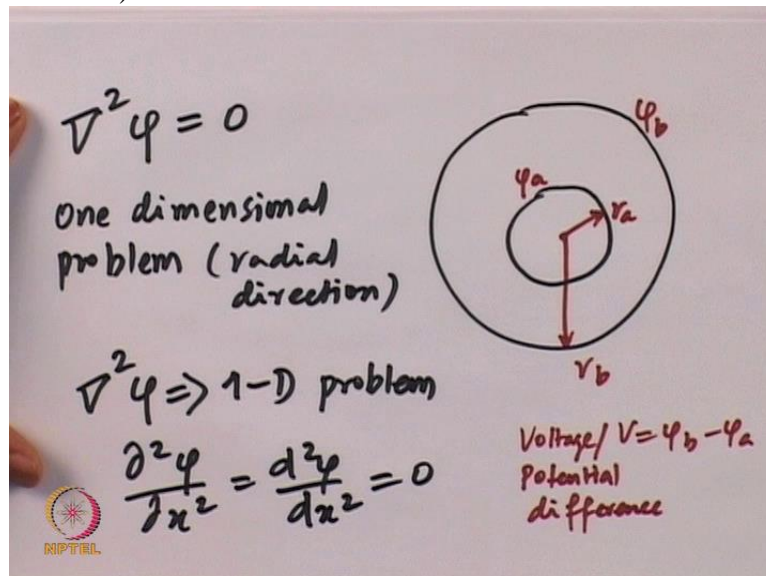 ∇²φ = 0
One dimensional
problem (radial
direction)
∇²φ => 1-D problem
∂²φ/∂x² = d²φ/dx² = 0
φb
φa
ra
rb
Voltage/ V = φb - φa
Potential
difference
NPTEL